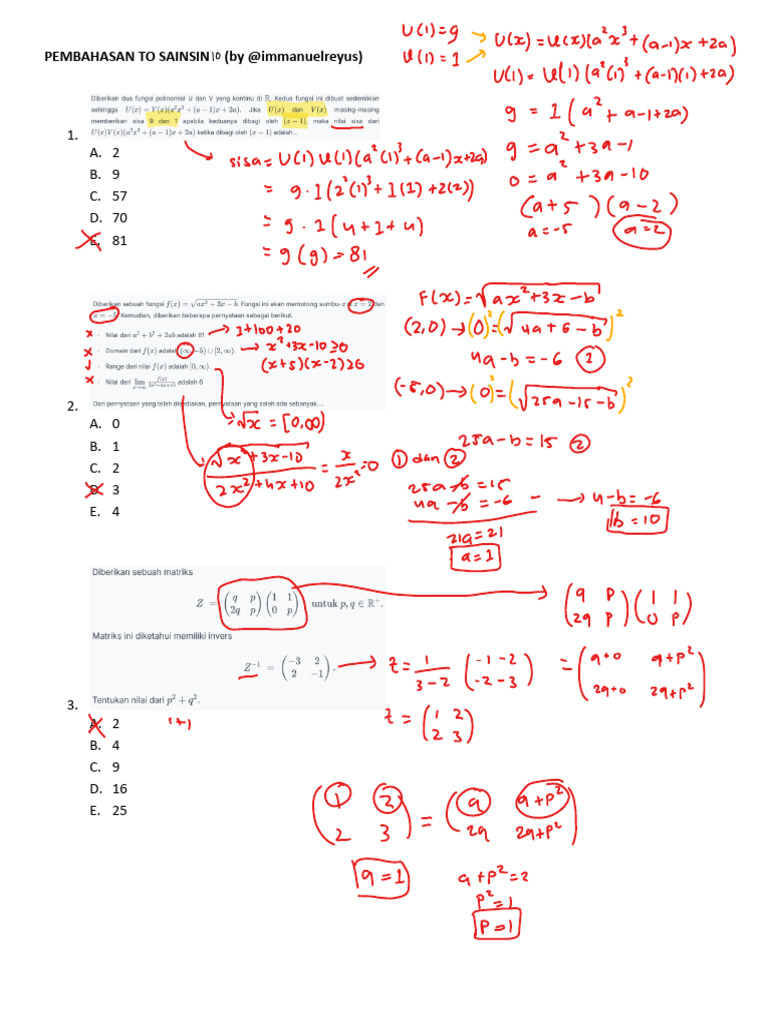 PEMBAHASAN TO SAINSIN10 (by @immanuelreyus)
U(1)=9
V(1)=1
U(x)=V(x)(a²x³+(a-1)x+2a)
U(1)=V(1)(a²(1)³+(a-1)(1)+2a)
9=1(a²+a-1+2a)
9=a²+3a-1
0=a²+3a-10
(a+5)(a-2)
a=-5 a=2
1.
Diberikan dua fungsi polinomial U dan V yang kontinu di ℝ. Kedua fungsi ini dibuat sedemikian
sehingga U(x) = V(x)(a²x³ + (a − 1)x + 2a). Jika U(x) dan V(x) masing-masing
memberikan sisa 9 dan 1 apabila keduanya dibagi oleh (x − 1), maka nilai sisa dari
U(x)V(x)(a²x³ + (a − 1)x + 2a) ketika dibagi oleh (x − 1) adalah...
A. 2
B. 9
C. 57
D. 70
E. 81
sisa=U(1)V(1)(a²(1)³+(a-1)x+2a)
=9.1(2²(1)³+1(1)+2(2))
=9.1(4+1+4)
=9(9)=81
2.
Diberikan sebuah fungsi f(x) = √ax² + 3x − b. Fungsi ini akan memotong sumbu-x x = 2 dan
x = −5. Kemudian, diberikan beberapa pernyataan sebagai berikut.
x - Nilai dari a² + b² + 2ab adalah 81
x - Domain dari f(x) adalah (∞, −5) ∪ [2, ∞).
- Range dari nilai f(x) adalah [0, ∞).
x - Nilai dari lim f(x)/2x²+4x+10 adalah 6
Dari pernyataan yang telah disediakan, pernyataan yang salah ada sebanyak...
A. 0
B. 1
C. 2
D. 3
E. 4
1+100+20
x²+3x-10≥0
(x+5)(x-2)≥0
√x=[0,∞)
√x²+3x-10/2x²+4x+10=x/2x²=0
F(x)=√ax²+3x-b
(2,0)→(0)²=(√4a+6-b)²
4a-b=-6 (2)
(-5,0)→(0)²=(√25a-15-b)²
25a-b=15 (2)
(1) dan (2)
25a-b=15
4a-b=-6 -
21a=21
a=1
→4-b=-6
b=10
3.
Diberikan sebuah matriks
Z = (q p; 2q p)(1 1; 0 p) untuk p, q ∈ ℝ⁺.
Matriks ini diketahui memiliki invers
Z⁻¹ = (−3 2; 2 −1).
Tentukan nilai dari p² + q².
A. 2
B. 4
C. 9
D. 16
E. 25
1+1
(q p; 2q p)(1 1; 0 p)
=(q+0 q+p²; 2q+0 2q+p²)
Z=1/3-2 (-1 -2; -2 -3)
Z=(1 2; 2 3)
(1 2; 2 3)=(q q+p²; 2q 2q+p²)
q=1
q+p²=2
p²=1
p=1